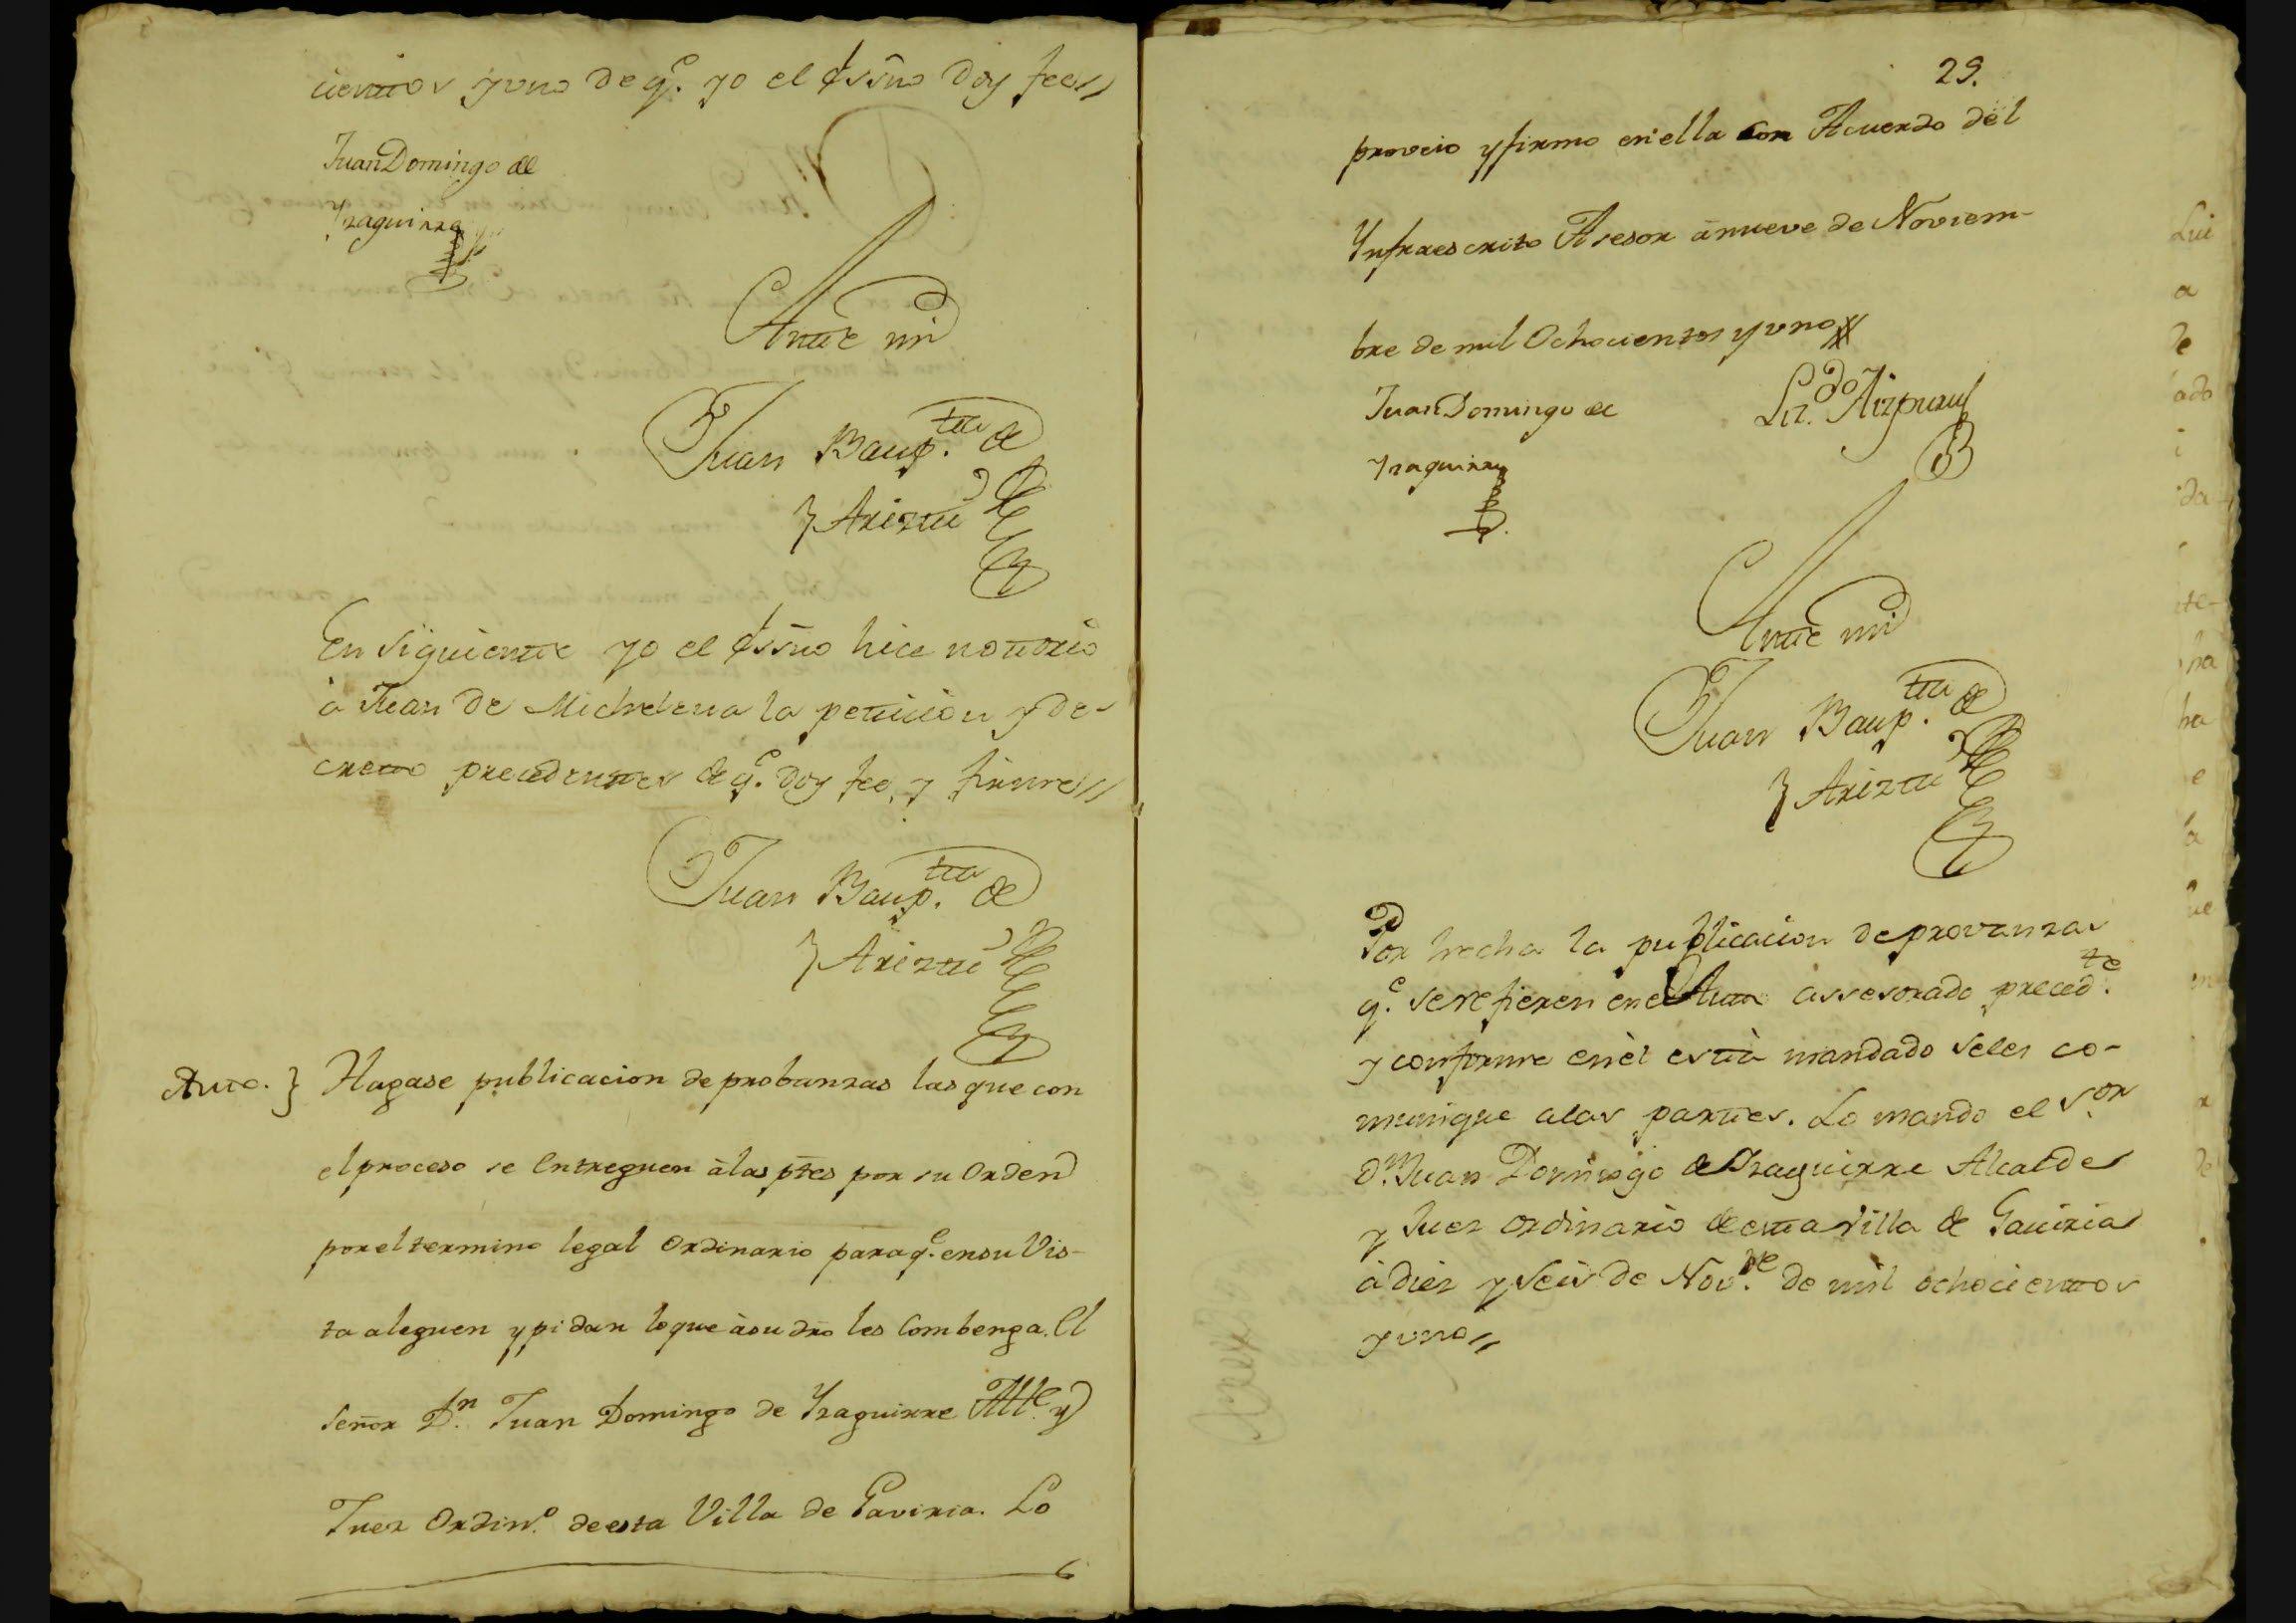 cientos y uno de q.e yo el Essño doy fee//
Juan Domingo de
Yzaguirre
Ante mi
Juan Baup.ta de
Arizti
En siguiente yo el Essño hice notorio
à Juan de Michelena la peticion y de-
creto precedentes de q.e doy fee, y firme//
Juan Baup.ta de
Arizti
Auto. } Hagase publicacion de probanzas las que con
el proceso se entreguen à las ptes por su Orden
por el termino legal Ordinario para q.e en su Vis-
ta aleguen y pidan lo que à su dro les Combenga. El
Señor D.n Juan Domingo de Yzaguirre Alle. y
Juez Ordin.o de esta Villa de Gaviria. Lo
29.
proveio y firmo en ella con Acuerdo del
Ynfraescrito Asesor à nueve de Noviem-
bre de mil Ochocientos y uno//
Juan Domingo de
Yzaguirre
Liz.do Aizpuru
Ante mi
Juan Baup.ta de
Arizti
Por hecha la publicacion de provanzas
q.e se refieren en el Auto assesorado preced.te
y conforme en èl està mandado seles co-
munique a las partes. Lo mando el S.or
D.n Juan Domingo de Yzaguirre Alcalde
y Juez ordinario de esta Villa de Gaviria
à diez y seis de Nov.re de mil ochocientos
y uno//